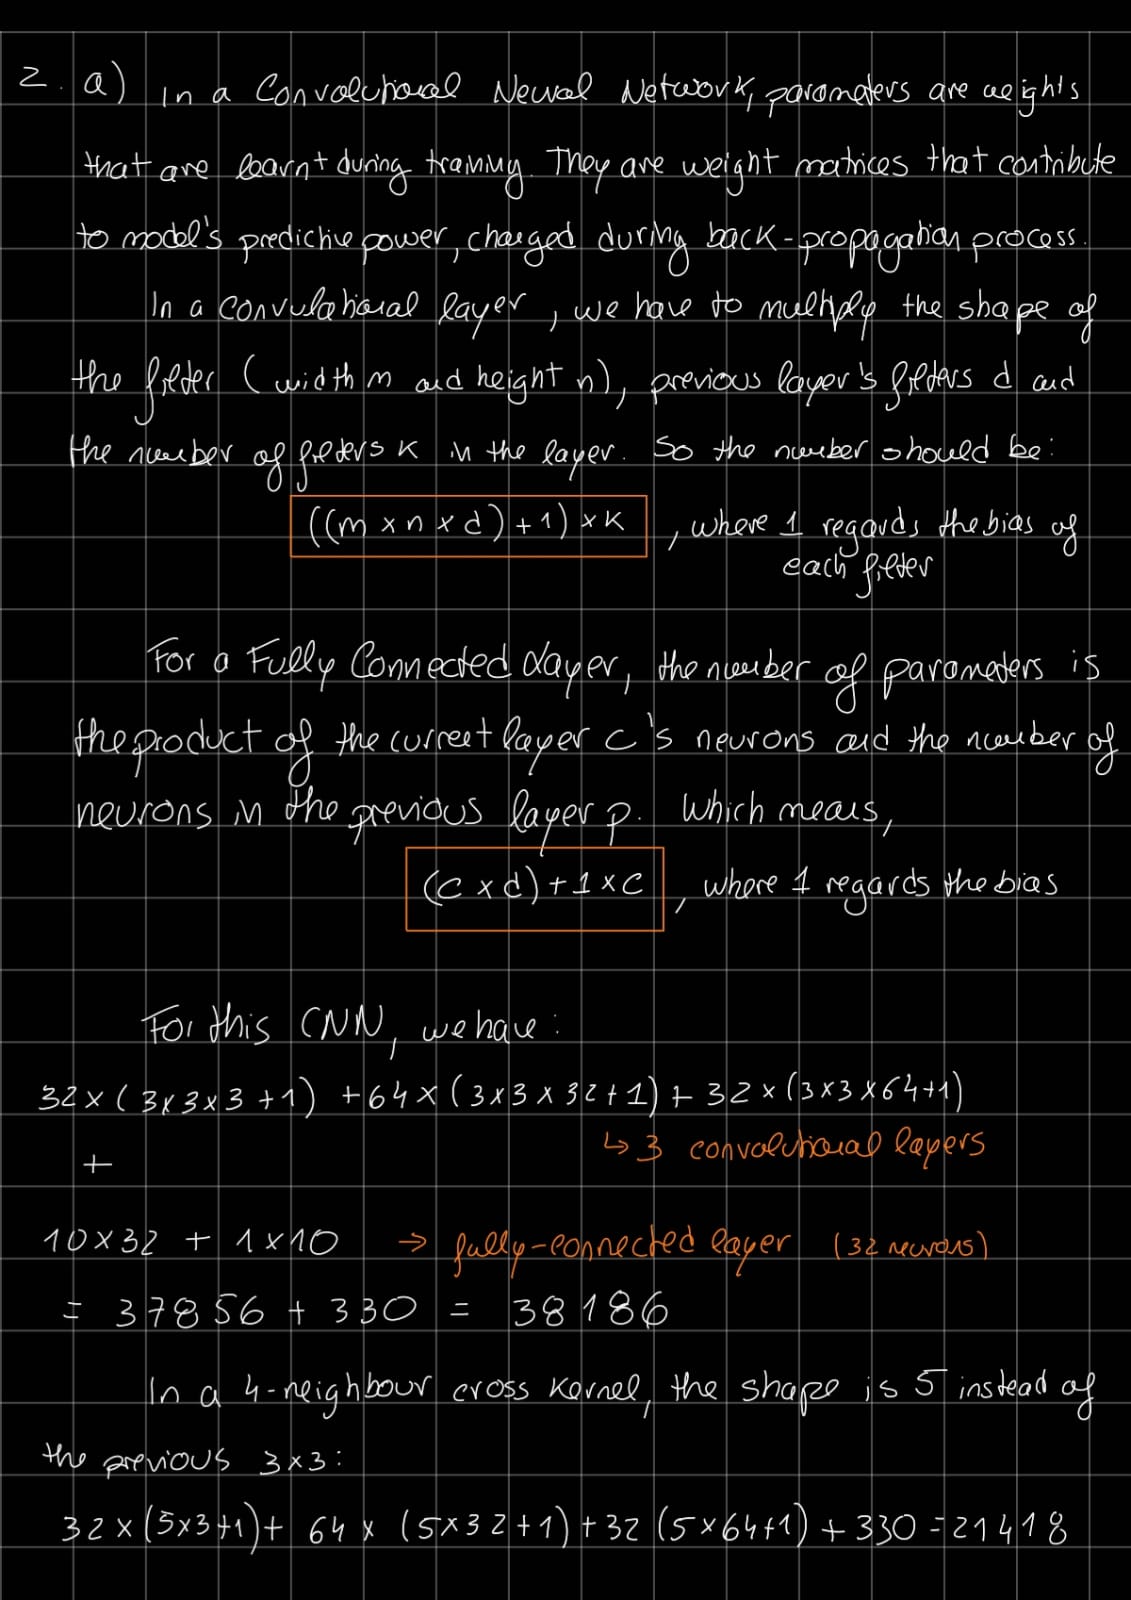 2. a) In a Convolutional Neural Network, parameters are weights
that are learnt during training. They are weight matrices that contribute
to model's predictive power, changed during back-propagation process.
In a convulational layer, we have to multiply the shape of
the filter (width m and height n), previous layer's filters d and
the number of filters k in the layer. So the number should be:
((m x n x d) + 1) x k , where 1 regards the bias of
each filter
For a Fully Connected Layer, the number of parameters is
the product of the current layer c's neurons and the number of
neurons in the previous layer p. Which means,
(c x d) + 1 x c , where 1 regards the bias
For this CNN, we have:
32 x (3 x 3 x 3 + 1) + 64 x (3 x 3 x 32 + 1) + 32 x (3 x 3 x 64 + 1)
↳ 3 convolutional layers
+
10 x 32 + 1 x 10 → fully-connected layer (32 neurons)
= 37856 + 330 = 38186
In a 4-neighbour cross Kernel, the shape is 5 instead of
the previous 3x3:
32 x (5x3+1) + 64 x (5x32+1) + 32 (5x64+1) + 330 = 21418